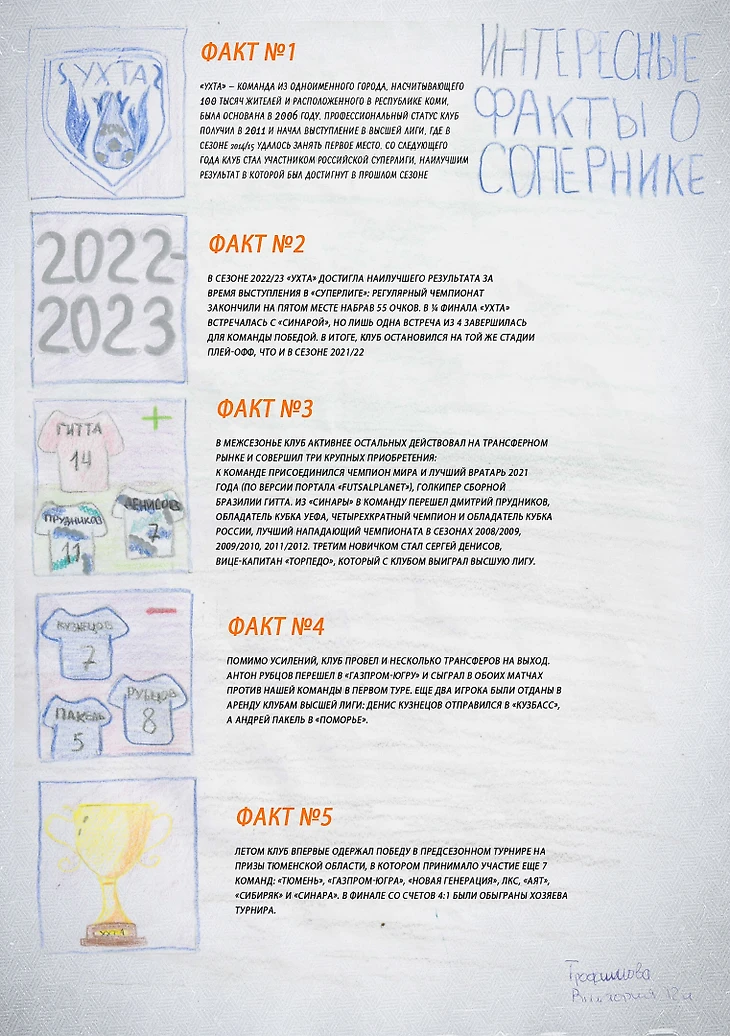 ИНТЕРЕСНЫЕ
ФАКТЫ О
СОПЕРНИКЕ
УХТА
ФАКТ №1
«УХТА» – КОМАНДА ИЗ ОДНОИМЕННОГО ГОРОДА, НАСЧИТЫВАЮЩЕГО
100 ТЫСЯЧ ЖИТЕЛЕЙ И РАСПОЛОЖЕННОГО В РЕСПУБЛИКЕ КОМИ,
БЫЛА ОСНОВАНА В 2006 ГОДУ. ПРОФЕССИОНАЛЬНЫЙ СТАТУС КЛУБ
ПОЛУЧИЛ В 2011 И НАЧАЛ ВЫСТУПЛЕНИЕ В ВЫСШЕЙ ЛИГИ, ГДЕ В
СЕЗОНЕ 2014/15 УДАЛОСЬ ЗАНЯТЬ ПЕРВОЕ МЕСТО. СО СЛЕДУЮЩЕГО
ГОДА КЛУБ СТАЛ УЧАСТНИКОМ РОССИЙСКОЙ СУПЕРЛИГИ, НАИЛУЧШИМ
РЕЗУЛЬТАТ В КОТОРОЙ БЫЛ ДОСТИГНУТ В ПРОШЛОМ СЕЗОНЕ
2022-
2023
ФАКТ №2
В СЕЗОНЕ 2022/23 «УХТА» ДОСТИГЛА НАИЛУЧШЕГО РЕЗУЛЬТАТА ЗА
ВРЕМЯ ВЫСТУПЛЕНИЯ В «СУПЕРЛИГЕ»: РЕГУЛЯРНЫЙ ЧЕМПИОНАТ
ЗАКОНЧИЛИ НА ПЯТОМ МЕСТЕ НАБРАВ 55 ОЧКОВ. В ¼ ФИНАЛА «УХТА»
ВСТРЕЧАЛАСЬ С «СИНАРОЙ», НО ЛИШЬ ОДНА ВСТРЕЧА ИЗ 4 ЗАВЕРШИЛАСЬ
ДЛЯ КОМАНДЫ ПОБЕДОЙ. В ИТОГЕ, КЛУБ ОСТАНОВИЛСЯ НА ТОЙ ЖЕ СТАДИИ
ПЛЕЙ-ОФФ, ЧТО И В СЕЗОНЕ 2021/22
ГИТТА
14
+
ПРУДНИКОВ
11
ДЕНИСОВ
7
ФАКТ №3
В МЕЖСЕЗОНЬЕ КЛУБ АКТИВНЕЕ ОСТАЛЬНЫХ ДЕЙСТВОВАЛ НА ТРАНСФЕРНОМ
РЫНКЕ И СОВЕРШИЛ ТРИ КРУПНЫХ ПРИОБРЕТЕНИЯ:
К КОМАНДЕ ПРИСОЕДИНИЛСЯ ЧЕМПИОН МИРА И ЛУЧШИЙ ВРАТАРЬ 2021
ГОДА (ПО ВЕРСИИ ПОРТАЛА «FUTSALPLANET»), ГОЛКИПЕР СБОРНОЙ
БРАЗИЛИИ ГИТТА. ИЗ «СИНАРЫ» В КОМАНДУ ПЕРЕШЕЛ ДМИТРИЙ ПРУДНИКОВ,
ОБЛАДАТЕЛЬ КУБКА УЕФА, ЧЕТЫРЕХКРАТНЫЙ ЧЕМПИОН И ОБЛАДАТЕЛЬ КУБКА
РОССИИ, ЛУЧШИЙ НАПАДАЮЩИЙ ЧЕМПИОНАТА В СЕЗОНАХ 2008/2009,
2009/2010, 2011/2012. ТРЕТИМ НОВИЧКОМ СТАЛ СЕРГЕЙ ДЕНИСОВ,
ВИЦЕ-КАПИТАН «ТОРПЕДО», КОТОРЫЙ С КЛУБОМ ВЫИГРАЛ ВЫСШУЮ ЛИГУ.
КУЗНЕЦОВ
7
РУБЦОВ
8
ПАКЕЛЬ
5
ФАКТ №4
ПОМИМО УСИЛЕНИЙ, КЛУБ ПРОВЕЛ И НЕСКОЛЬКО ТРАНСФЕРОВ НА ВЫХОД.
АНТОН РУБЦОВ ПЕРЕШЕЛ В «ГАЗПРОМ-ЮГРУ» И СЫГРАЛ В ОБОИХ МАТЧАХ
ПРОТИВ НАШЕЙ КОМАНДЫ В ПЕРВОМ ТУРЕ. ЕЩЕ ДВА ИГРОКА БЫЛИ ОТДАНЫ В
АРЕНДУ КЛУБАМ ВЫСШЕЙ ЛИГИ: ДЕНИС КУЗНЕЦОВ ОТПРАВИЛСЯ В «КУЗБАСС»,
А АНДРЕЙ ПАКЕЛЬ В «ПОМОРЬЕ».
УХТА
ФАКТ №5
ЛЕТОМ КЛУБ ВПЕРВЫЕ ОДЕРЖАЛ ПОБЕДУ В ПРЕДСЕЗОННОМ ТУРНИРЕ НА
ПРИЗЫ ТЮМЕНСКОЙ ОБЛАСТИ, В КОТОРОМ ПРИНИМАЛО УЧАСТИЕ ЕЩЕ 7
КОМАНД: «ТЮМЕНЬ», «ГАЗПРОМ-ЮГРА», «НОВАЯ ГЕНЕРАЦИЯ», ЛКС, «АЯТ»,
«СИБИРЯК» И «СИНАРА». В ФИНАЛЕ СО СЧЕТОВ 4:1 БЫЛИ ОБЫГРАНЫ ХОЗЯЕВА
ТУРНИРА.
Трофимова
Виктория